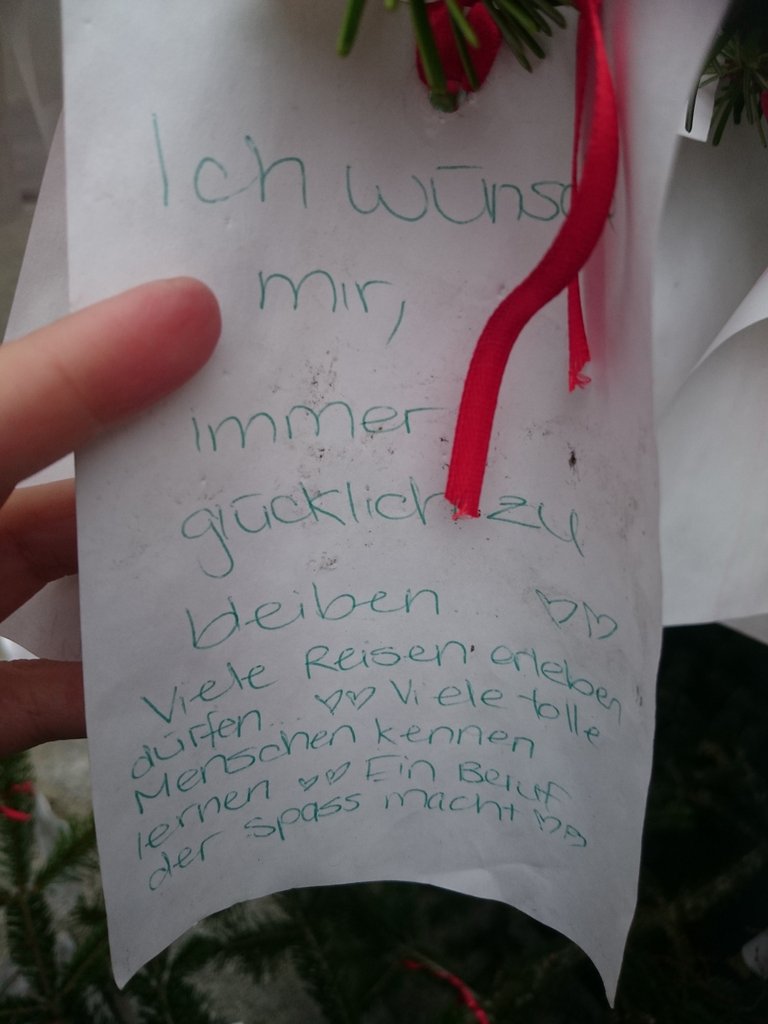 Ich wünsc
mir,
immer
glücklich zu
bleiben ♡♡
Viele Reisen erleben
dürfen... ♡♡ Viele tolle
Menschen kennen
lernen ♡♡ Ein Beruf
der spass macht ♡♡